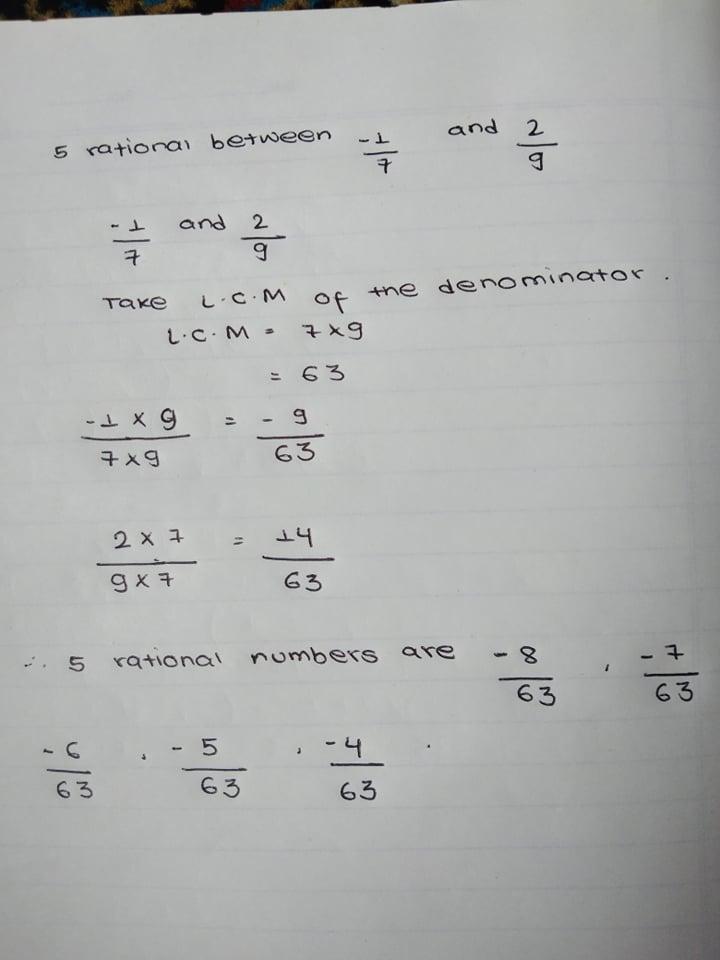 5 rational between -1/7 and 2/9
-1/7 and 2/9
Take L.C.M of the denominator.
L.C.M = 7×9
= 63
-1 × 9 / 7×9 = - 9/63
2 × 7 / 9 × 7 = 14/63
∴ 5 rational numbers are -8/63 , -7/63
-6/63 , -5/63 , -4/63 .